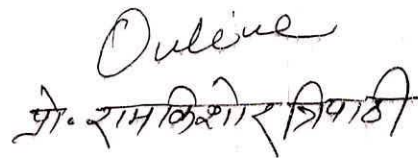 Online
प्रो. रामकिशोर त्रिपाठी